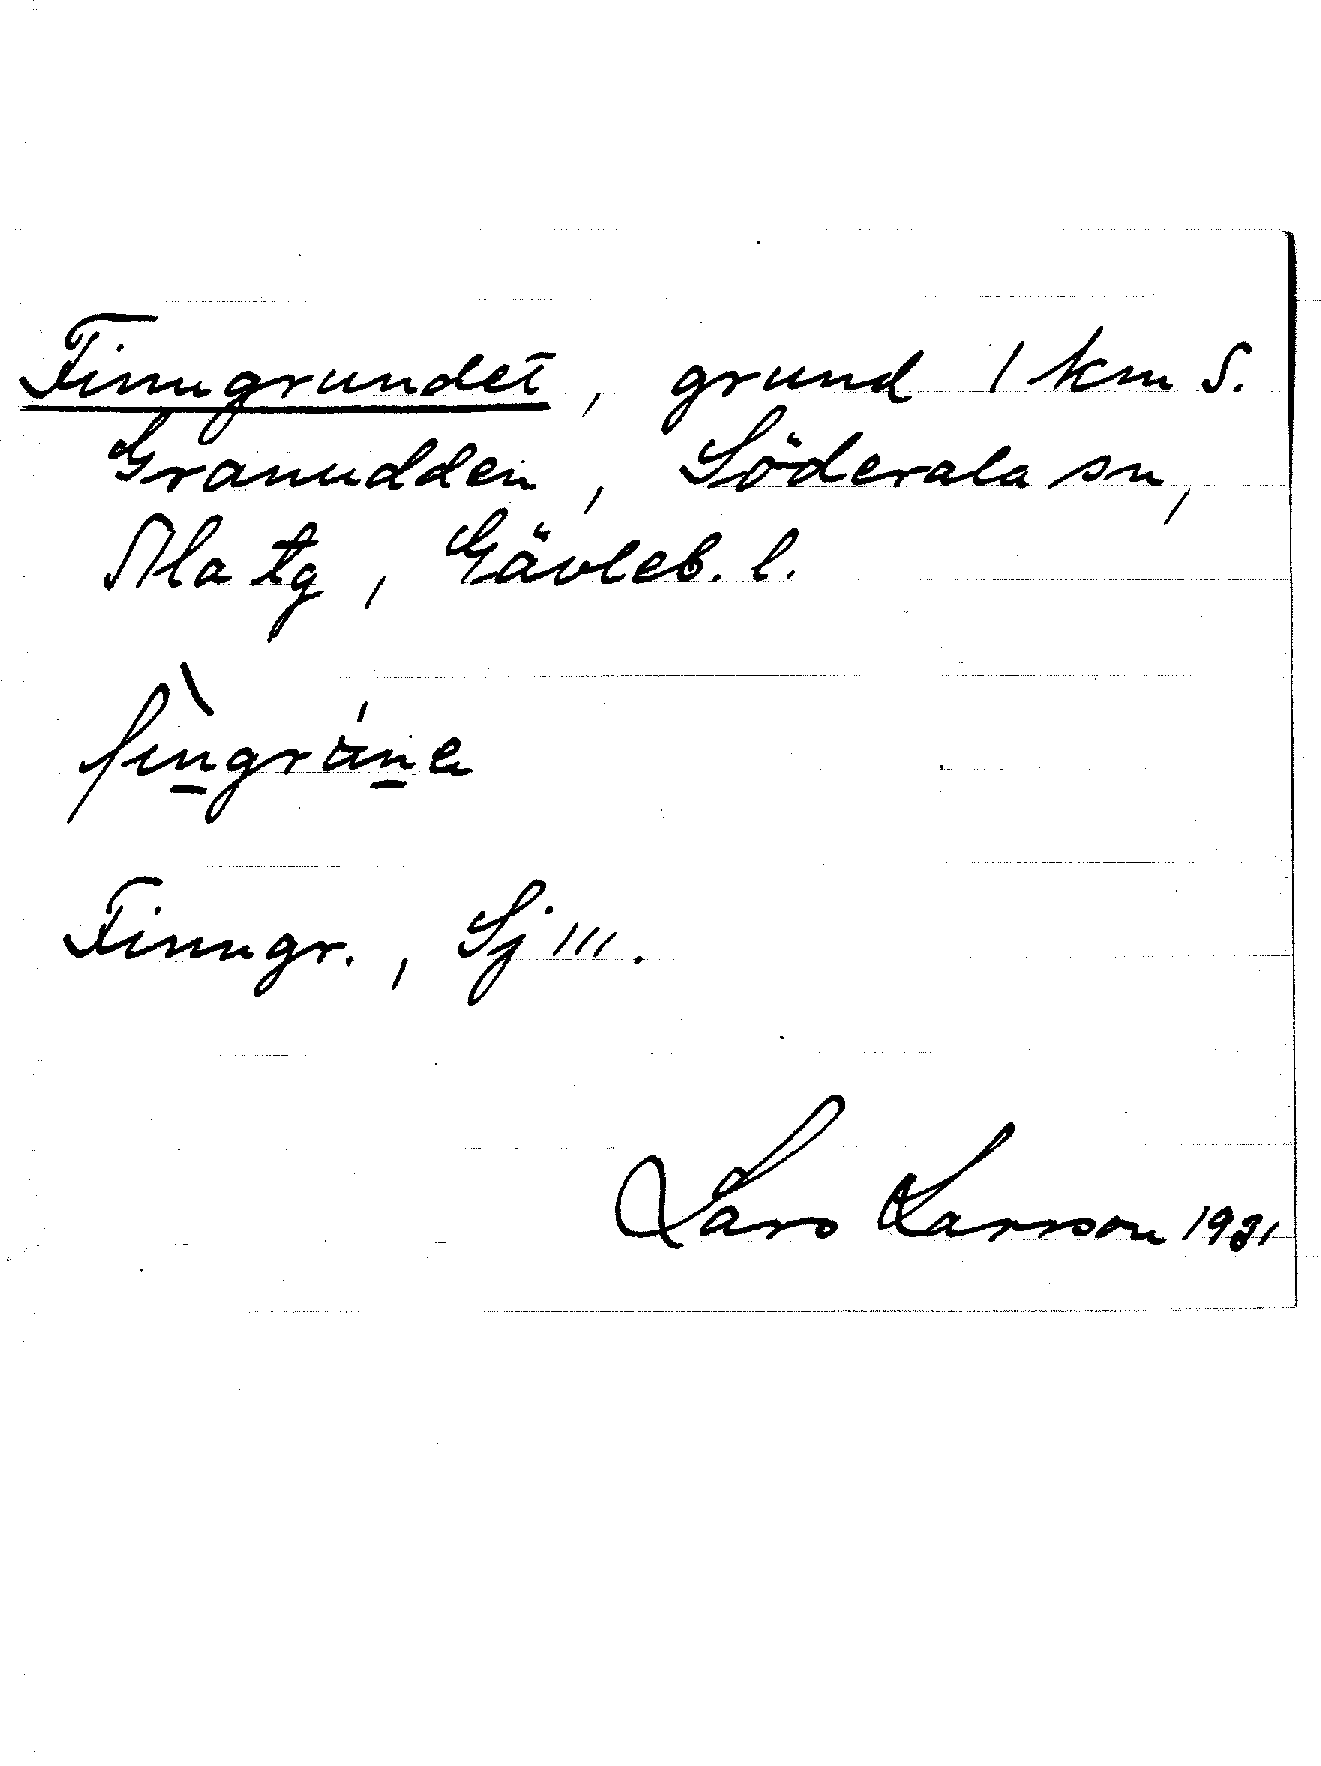 Finngrundet, grund 1 km S.
Granudden, Söderala sn,
Ala tg, Gävleb. l.
fìn̲grún̲a
Finngr., Sj 111.
Lars Larsson 1931